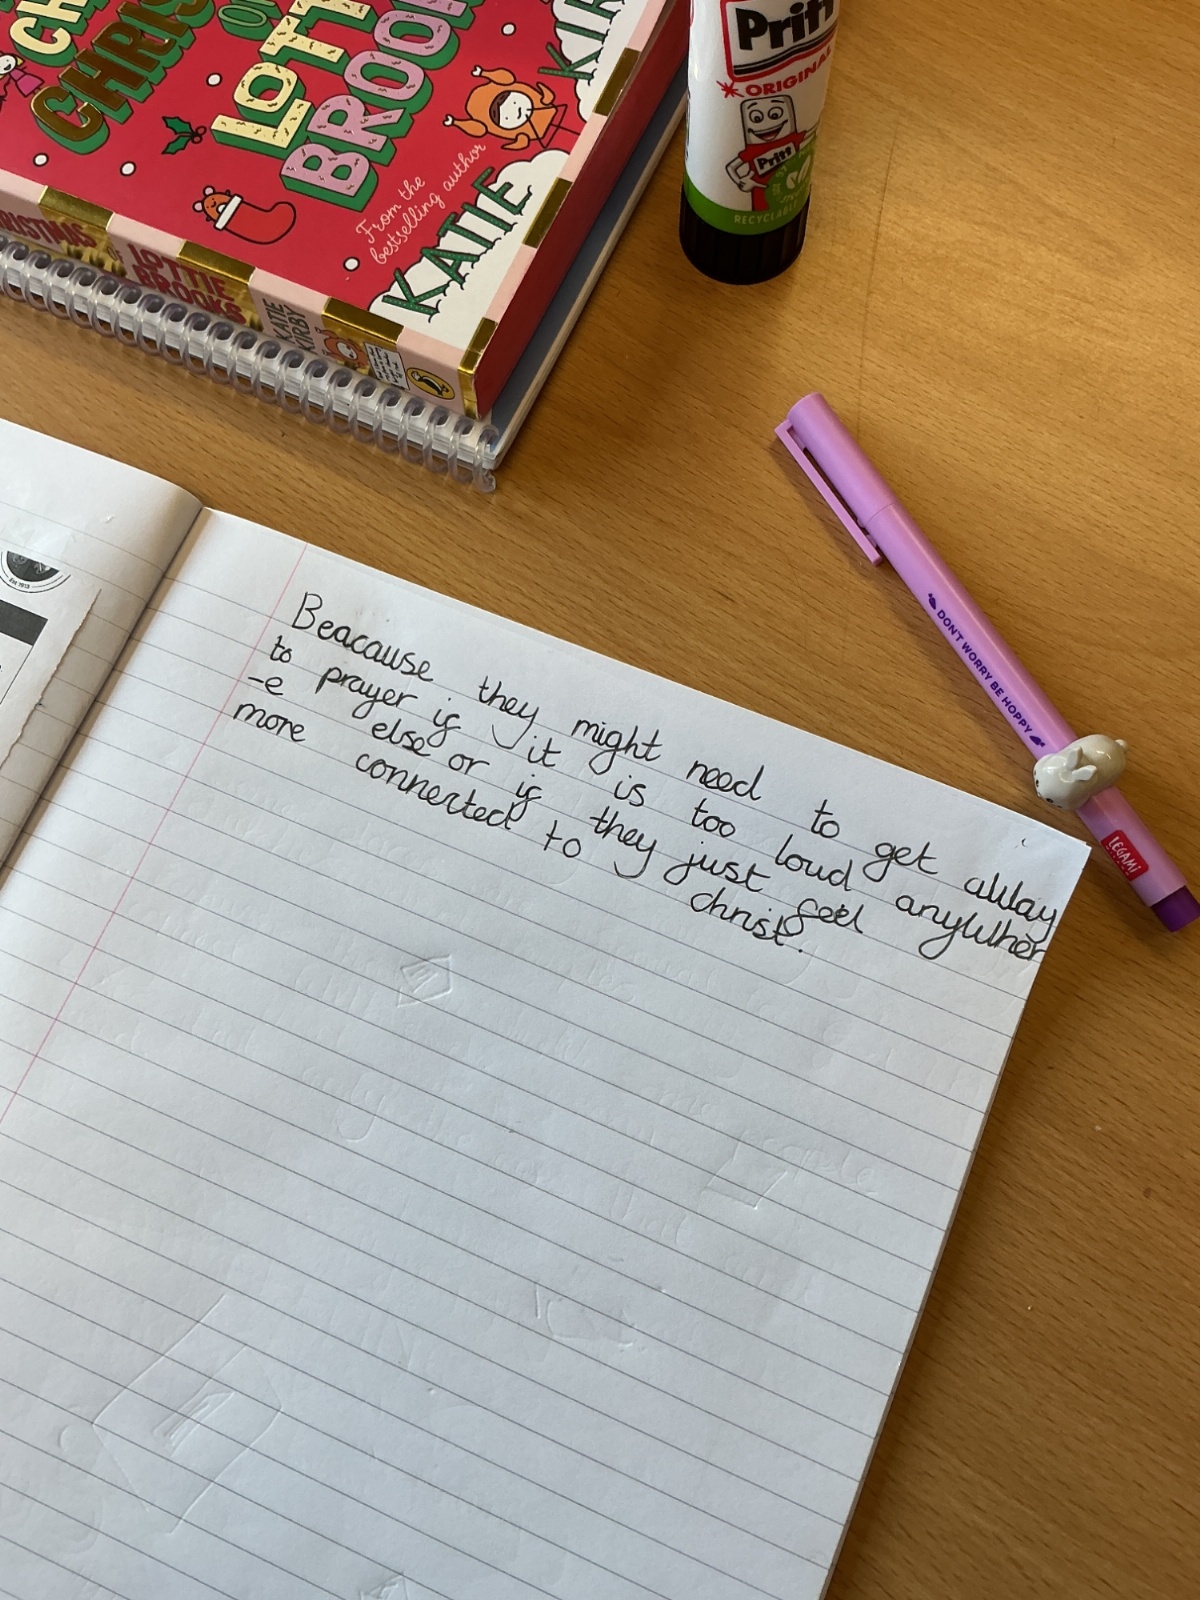 CHRIS
OF
LOTTI
BROOK
From the
bestselling author
KATIE
KIR
CHRISTMAS
OF
LOTTIE
BROOKS
KATIE
KIRBY
Pritt
ORIGINAL
Pritt
RECYCLABLE
DON'T WORRY BE HOPPY
LEGAMI
Beacause they might need to get away
to prayer if it is too loud anywher
-e else or if they just feel
more connected to christ.